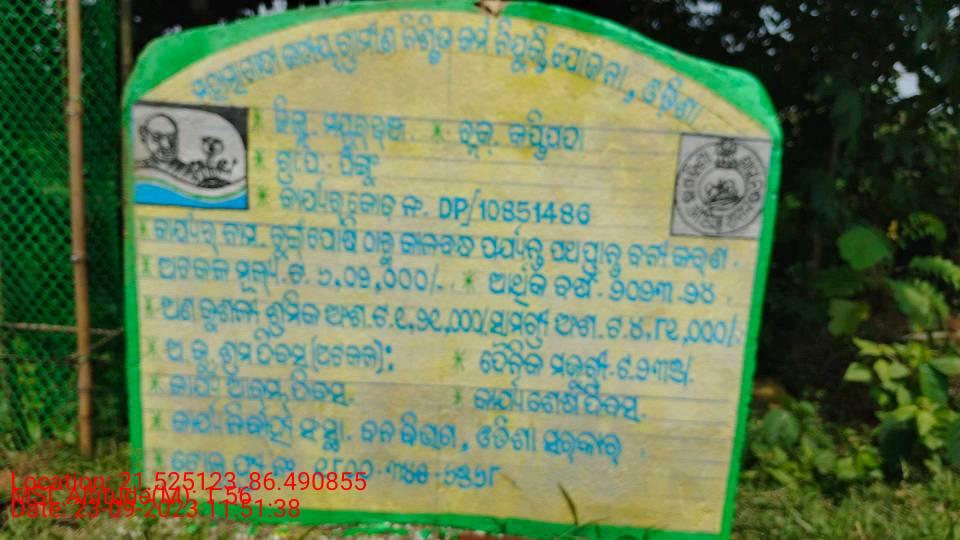 ମହାତ୍ମାଗାନ୍ଧୀ ଜାତୀୟ ଗ୍ରାମୀଣ ନିଶ୍ଚିତ କର୍ମ ନିଯୁକ୍ତି ଯୋଜନା, ଓଡ଼ିଶା
* ଜିଲ୍ଲା. ମୟୁରଭଞ୍ଜ. * ବ୍ଲକ. କପ୍ତିପଦା
* ଗ୍ରା.ପ.
* କାର୍ଯ୍ୟର କୋଡ୍ ନଂ. DP/10851486
* କାର୍ଯ୍ୟର ନାମ. ଠାରୁ ପର୍ଯ୍ୟନ୍ତ ପଥପ୍ରାନ୍ତ ବନୀକରଣ.
* ଅଟକଳ ମୂଲ୍ୟ.ଟ. ୬,୦୨,୦୦୦/. * ଆର୍ଥିକ ବର୍ଷ.୨୦୨୩.୨୪.
* ଅଣକୁଶଳୀ ଶ୍ରମିକ ଅଂଶ.ଟ.୧,୨୧,୦୦୦/ସାମଗ୍ରୀ ଅଂଶ.ଟ.୪,୮୧,୦୦୦/.
* ଅ.କୁ.ଶ୍ରମ ଦିବସ(ଅଟକଳ): * ଦୈନିକ ମଜୁରୀ.ଟ.୨୩୭/.
* କାର୍ଯ୍ୟ ଆରମ୍ଭ ଦିବସ. * କାର୍ଯ୍ୟ ଶେଷ ଦିବସ.
* କାର୍ଯ୍ୟ ନିର୍ବାହୀ ସଂସ୍ଥା. ବନ ବିଭାଗ, ଓଡିଶା ସରକାର
* ଟୋଲ ଫ୍ରି ନଂ. ୧୮୦୦
Location: 21.525123,86.490855
MSL Altitude(M): 1.56
Date: 23-09-2023 11:51:38